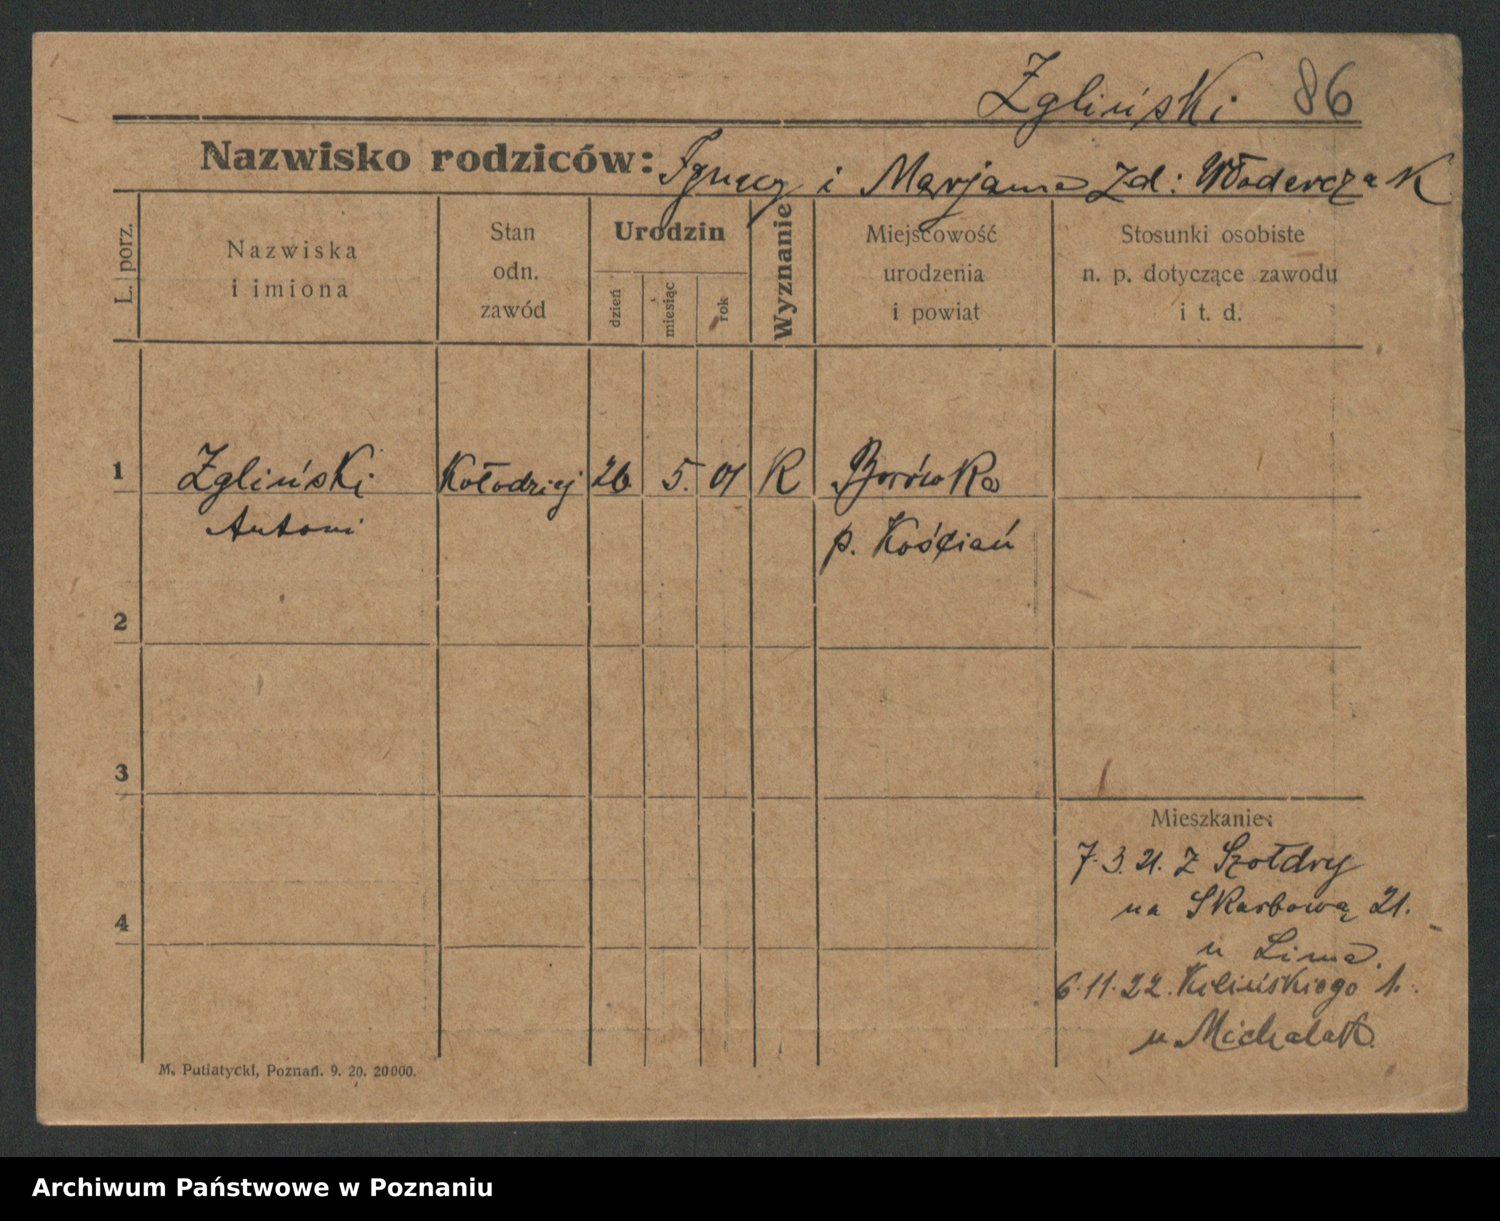 Zgliński 86
Nazwisko rodziców: Ignacy i Marjanna zd: Włoderczak
L. porz.
Nazwiska
i imiona
Stan
odn.
zawód
Urodzin
dzień
miesiąc
rok
Wyznanie
Miejscowość
urodzenia
i powiat
Stosunki osobiste
n. p. dotyczące zawodu
i t. d.
1 Zgliński Kołodziej 26 5. 01 K Borówka
Antoni p. Kościań
2
3
Mieszkanie:
7.3.21. z Szołdry
na Skarbową 21.
4
u Lima.
6.11.22. Kilińskiego 1.
u Michalak.
M. Putiatycki, Poznań. 9. 20. 20000.
Archiwum Państwowe w Poznaniu